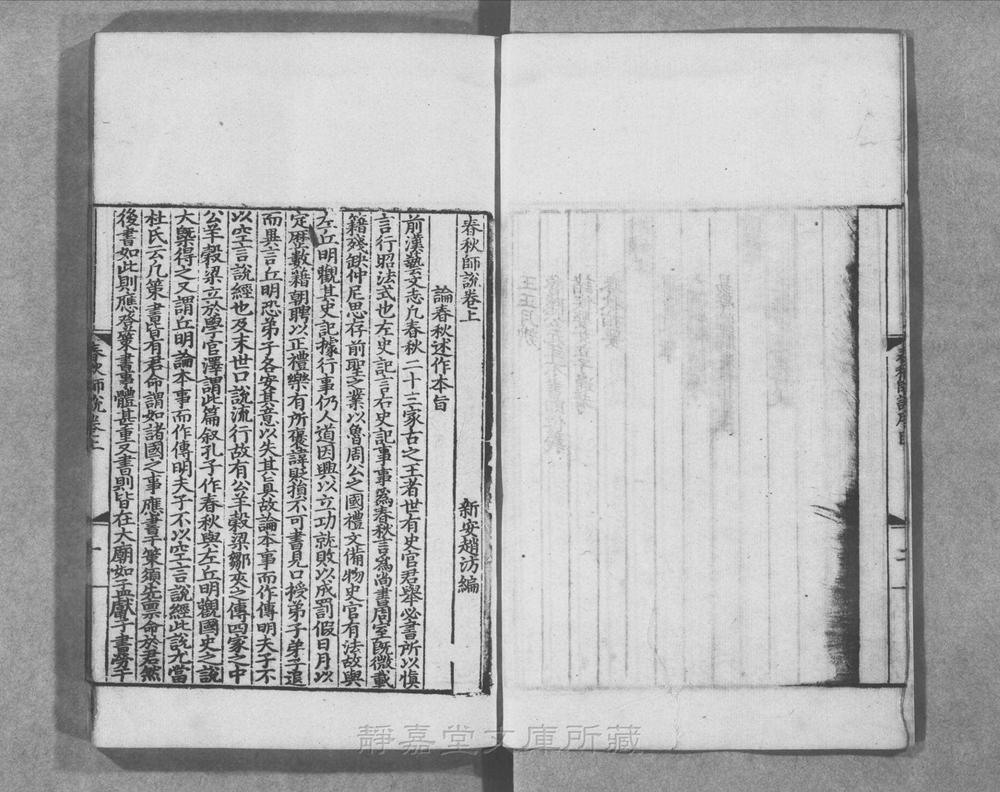 春秋師說卷上
新安趙汸編
論春秋述作本旨
前漢藝文志凡春秋二十三家古之王者世有史官君舉必書所以慎
言行昭法式也左史記言右史記事事爲春秋言爲尚書周室旣微載
籍殘缺仲尼思存前聖之業以魯周公之國禮文備物史官有法故與
左丘明觀其史記據行事仍人道因興以立功就敗以成罰假日月以
定歷數藉朝聘以正禮樂有所褒諱貶損不可書見口授弟子弟子退
而異言丘明恐弟子各安其意以失其眞故論本事而作傳明夫子不
以空言說經也及末世口說流行故有公羊穀梁鄒夾之傳四家之中
公羊穀梁立於學官澤謂此篇叙孔子作春秋與左丘明觀國史之說
大槩得之又謂丘明論本事而作傳明夫子不以空言說經此說尤當
杜氏云凡策書皆有君命謂如諸國之事應書于策須先禀命於君然
後書如此則應登策書事體甚重又書則皆在太廟如孟獻子書勞于
春秋師說卷上
一
二
靜嘉堂文庫所藏